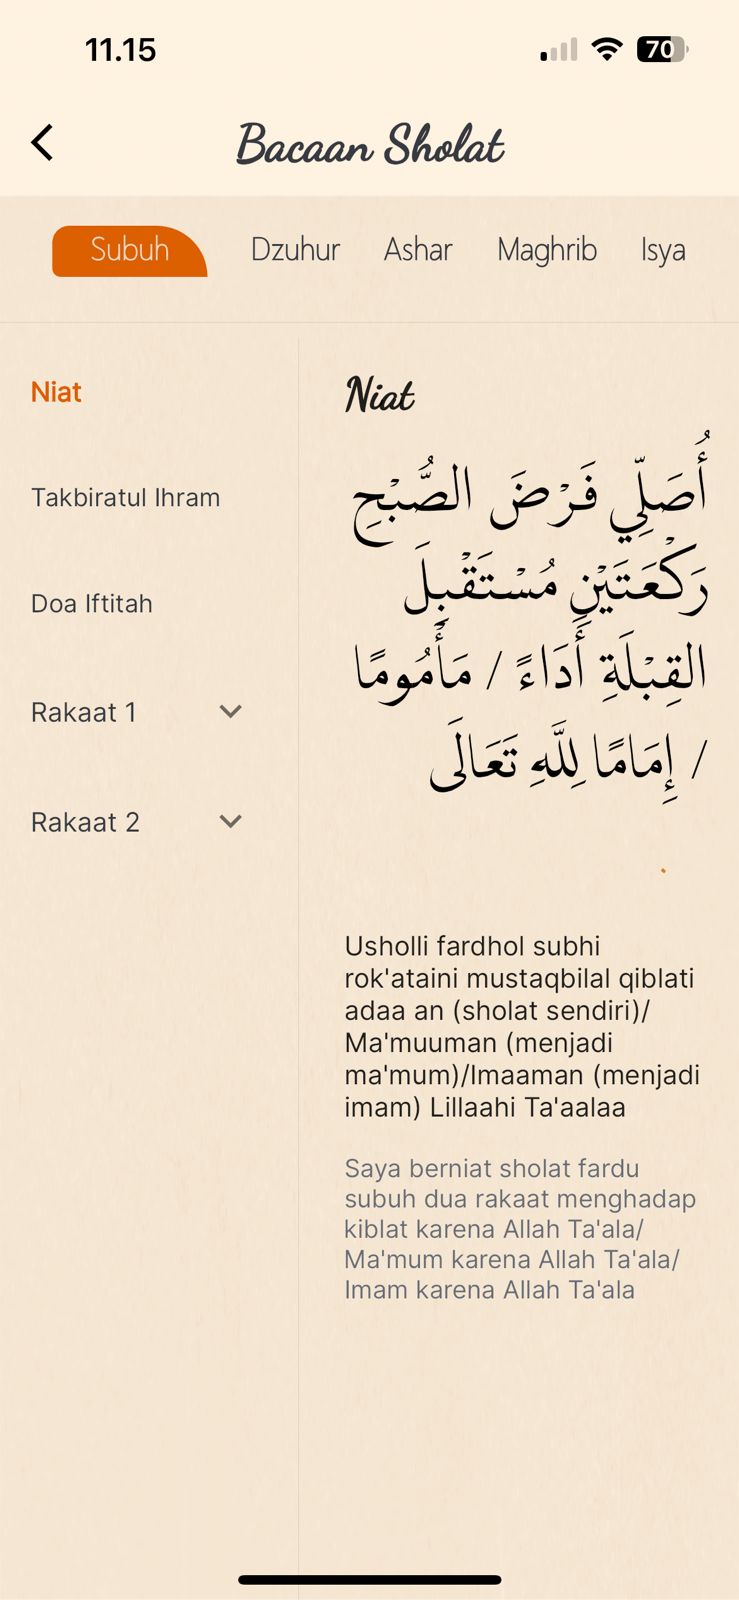 11.15
70
Bacaan Sholat
Subuh
Dzuhur
Ashar
Maghrib
Isya
Niat
Takbiratul Ihram
Doa Iftitah
Rakaat 1
Rakaat 2
Niat
أُصَلِّي فَرْضَ الصُّبْحِ
رَكْعَتَيْنِ مُسْتَقْبِلَ
القِبْلَةِ أَدَاءً / مَأْمُومًا
/ إِمَامًا لِلَّهِ تَعَالَى
Usholli fardhol subhi
rok'ataini mustaqbilal qiblati
adaa an (sholat sendiri)/
Ma'muuman (menjadi
ma'mum)/Imaaman (menjadi
imam) Lillaahi Ta'aalaa
Saya berniat sholat fardu
subuh dua rakaat menghadap
kiblat karena Allah Ta'ala/
Ma'mum karena Allah Ta'ala/
Imam karena Allah Ta'ala